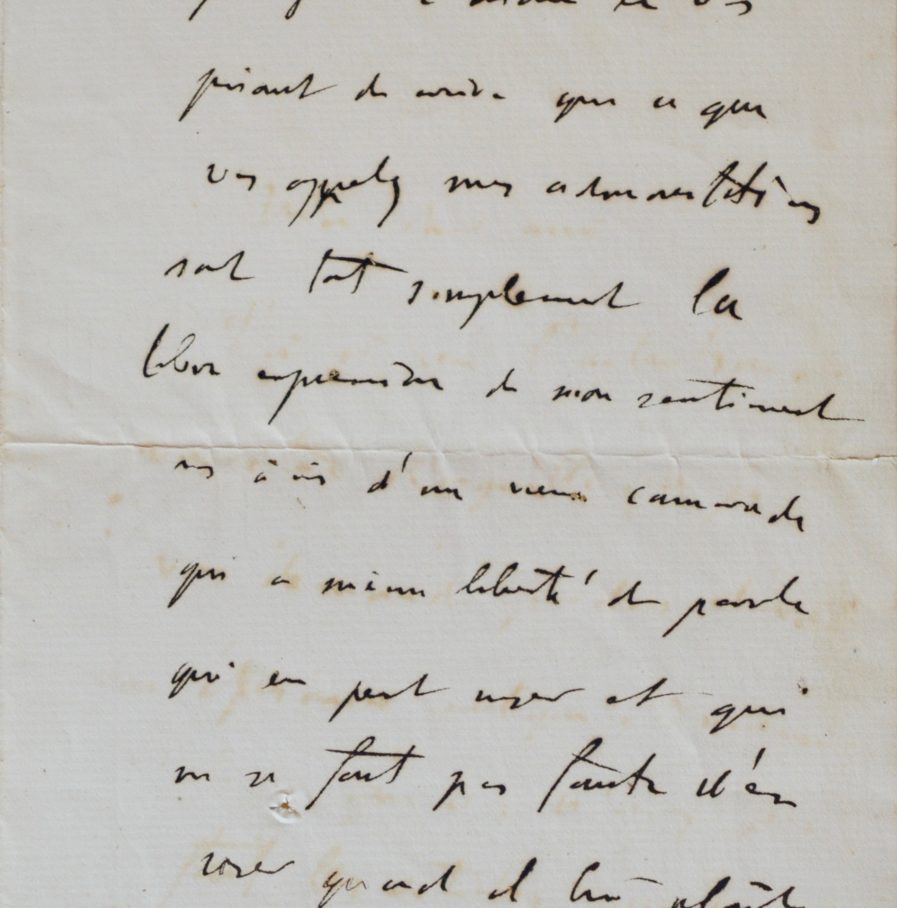 prient de croire que ce que
vous appelez mes admonestations
sont tout simplement la
libre expression de mon sentiment
vis à vis d'un vieux camarade
qui a même liberté de parole
qui en peut user et qui
ne se fait pas faute d'en
user quand il lui plaît